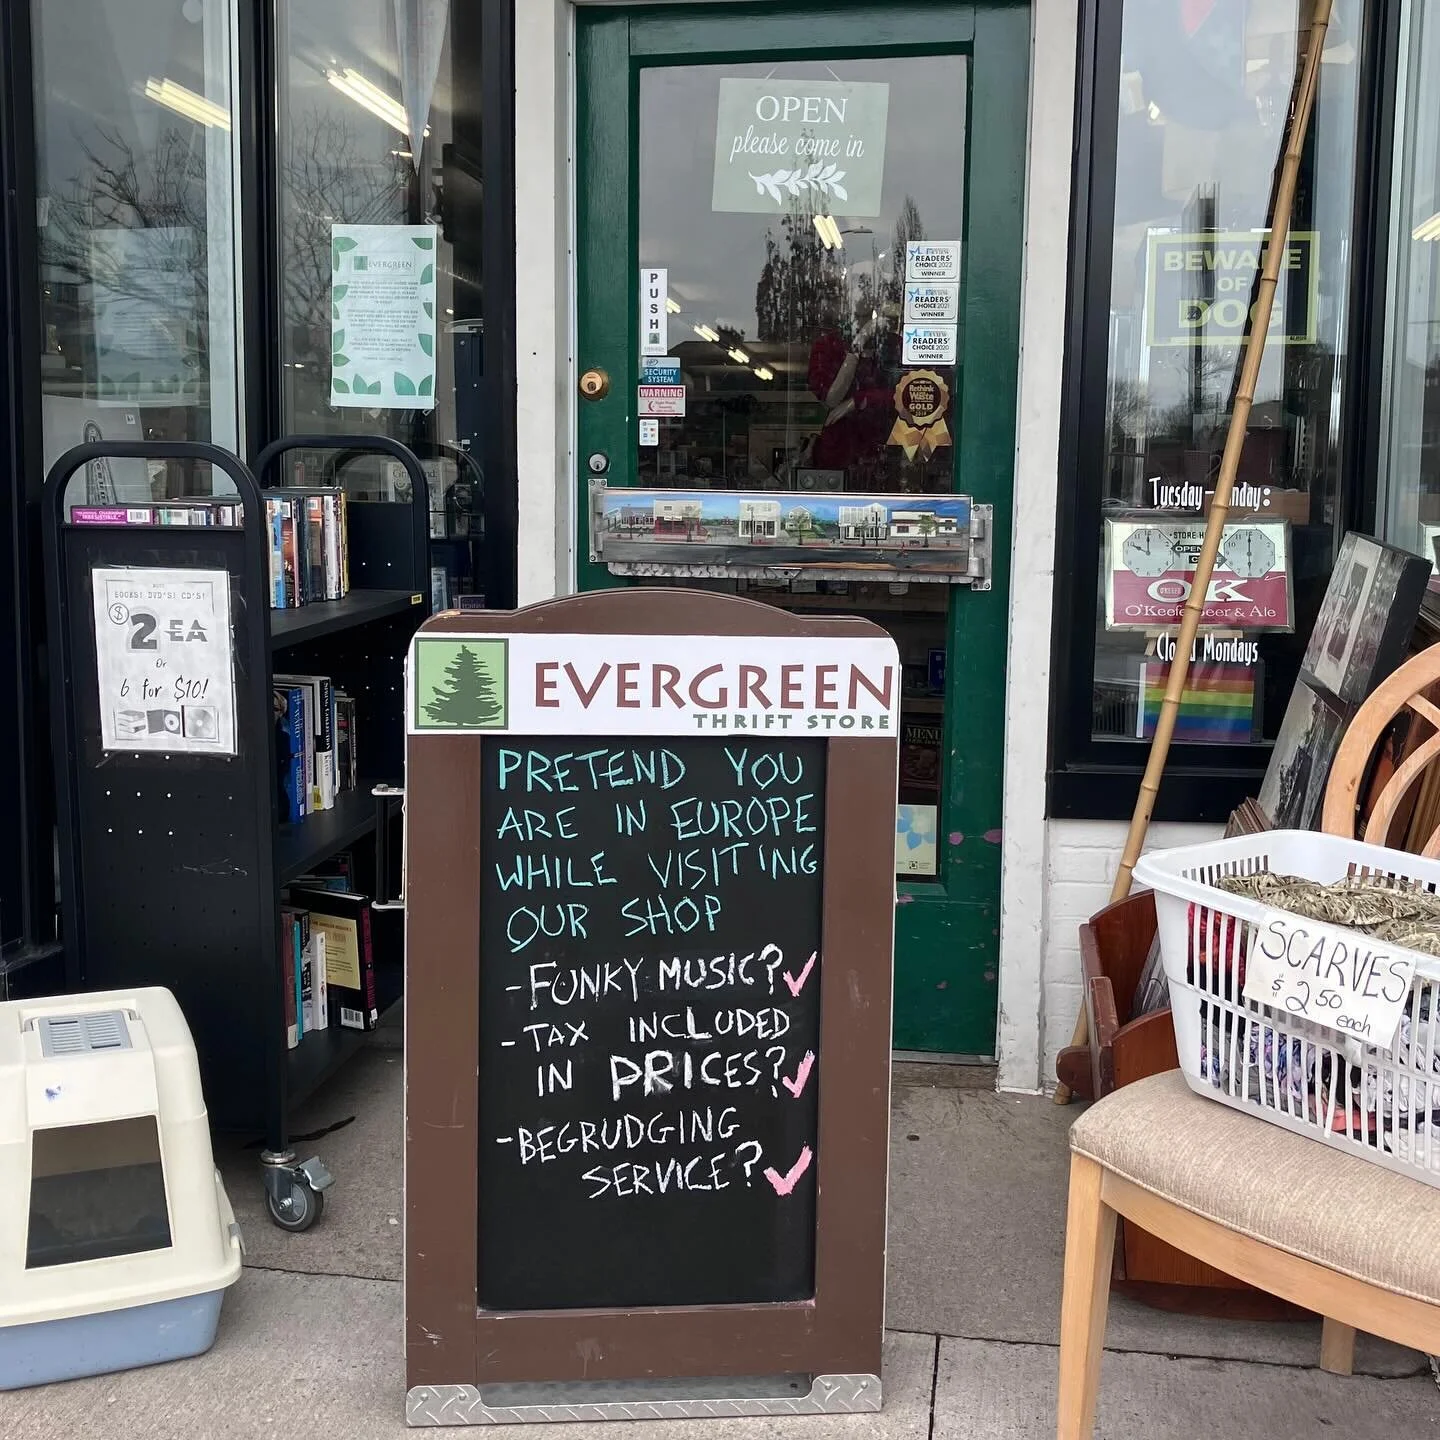 OPEN
please come in
PUSH
SECURITY
SYSTEM
WARNING
READERS'
CHOICE 2022
WINNER
READERS'
CHOICE 2021
WINNER
READERS'
CHOICE 2020
WINNER
Rethink
Waste
GOLD
EVERGREEN
BEWARE
OF
DOG
Tuesday
nday:
STORE
OPEN
OK
O'Keefe Beer & Ale
Mondays
MENU
BOOKS! DVD'S! CD'S!
$2 EA
Or
6 for $10!
EVERGREEN
THRIFT STORE
PRETEND YOU
ARE IN EUROPE
WHILE VISITING
OUR SHOP
-FUNKY MUSIC?✓
-TAX INCLUDED
IN PRICES?✓
-BEGRUDGING
SERVICE?✓
SCARVES
$2.50
each